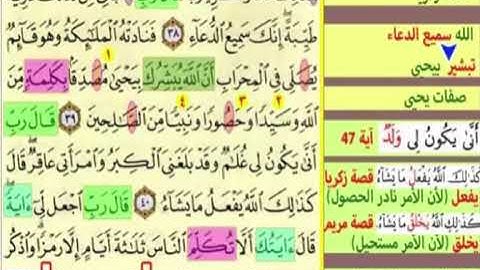 طَيِّبَةً ۖ إِنَّكَ سَمِيعُ الدُّعَاءِ ﴿٣٨﴾ فَنَادَتْهُ الْمَلَائِكَةُ وَهُوَ قَائِمٌ
١
يُصَلِّي فِي الْمِحْرَابِ أَنَّ اللَّهَ يُبَشِّرُكَ بِيَحْيَىٰ مُصَدِّقًا بِكَلِمَةٍ مِّنَ
٢ ٣ ٤
اللَّهِ وَسَيِّدًا وَحَصُورًا وَنَبِيًّا مِّنَ الصَّالِحِينَ ﴿٣٩﴾ قَالَ رَبِّ
أَنَّىٰ يَكُونُ لِي غُلَامٌ وَقَدْ بَلَغَنِيَ الْكِبَرُ وَامْرَأَتِي عَاقِرٌ ۖ قَالَ
كَذَٰلِكَ اللَّهُ يَفْعَلُ مَا يَشَاءُ ﴿٤٠﴾ قَالَ رَبِّ اجْعَل لِّي آيَةً ۖ
قَالَ آيَتُكَ أَلَّا تُكَلِّمَ النَّاسَ ثَلَاثَةَ أَيَّامٍ إِلَّا رَمْزًا ۗ وَاذْكُر
الله سميع الدعاء
تبشير بيحيى
صفات يحيى
أَنَّىٰ يَكُونُ لِي وَلَدٌ آية 47
كَذَٰلِكَ اللَّهُ يَفْعَلُ مَا يَشَاءُ قصة زكريا
يفعل (لأن الأمر نادر الحصول)
كَذَٰلِكِ اللَّهُ يَخْلُقُ مَا يَشَاءُ قصة مريم
يخلق (لأن الأمر مستحيل)